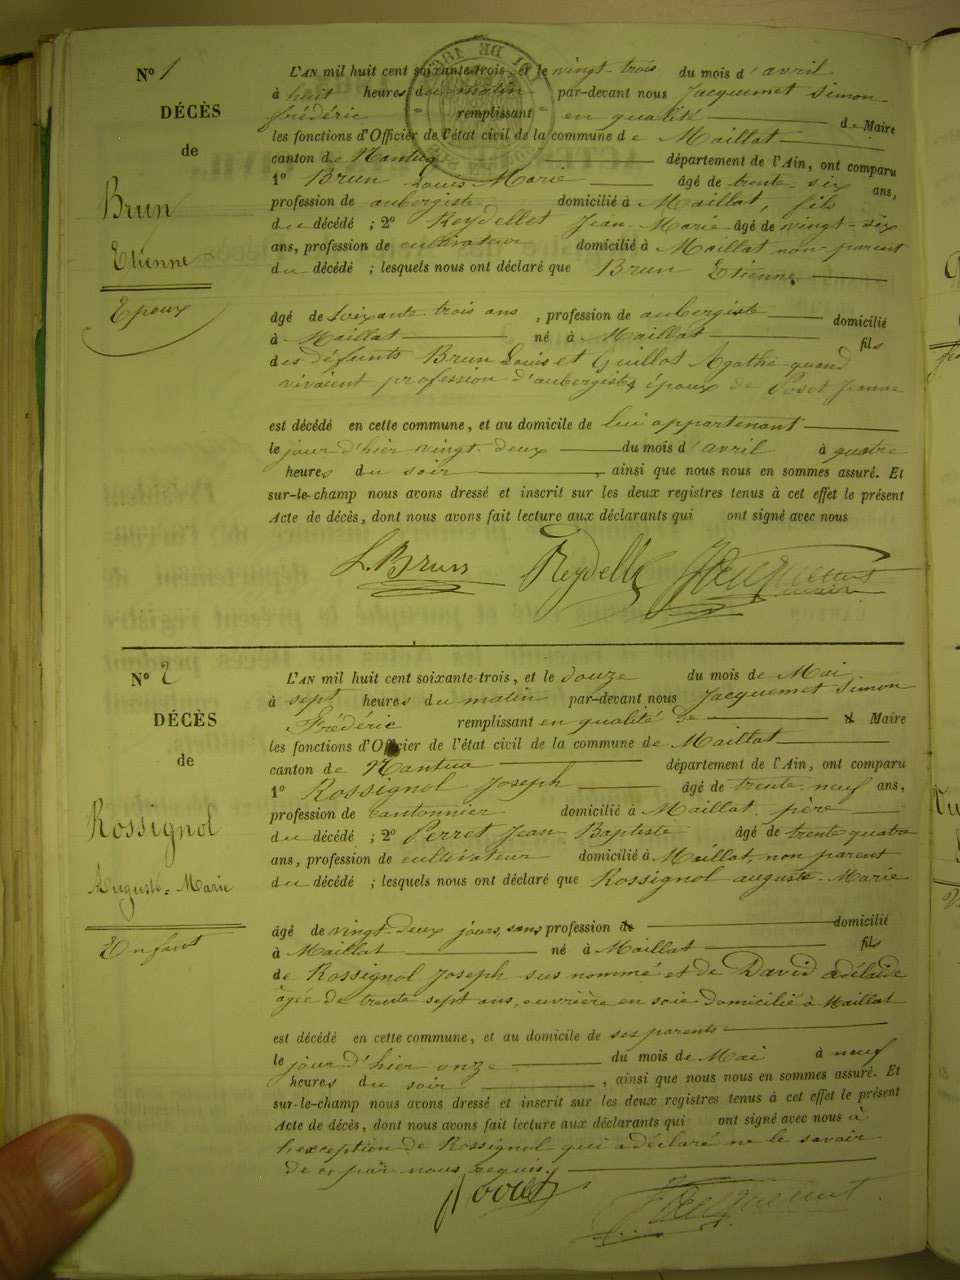 N° 1
DÉCÈS
de
Brun
Etienne
Epoux
L'AN mil huit cent soixante-trois, et le vingt-trois du mois d'avril
à huit heures du matin par-devant nous Jacquemet Simon
frédéric remplissant en qualité de Maire
les fonctions d'Officier de l'état civil de la commune de Maillat
canton de Nantua département de l'Ain, ont comparu
1° Brun Louis Marie âgé de trente-six ans,
profession de aubergiste domicilié à Maillat, fils
du décédé ; 2° Reydellet Jean-Marie âgé de vingt-six
ans, profession de cultivateur domicilié à Maillat non-parent
du décédé ; lesquels nous ont déclaré que Brun Etienne
âgé de soixante trois ans, profession de aubergiste domicilié
à Maillat né à Maillat fils
des défunts Brun Louis et Guillot Agathe quand
vivaient profession d'aubergistes époux de Jeanne
est décédé en cette commune, et au domicile de lui appartenant
le jour d'hier vingt-deux du mois d'avril à quatre
heures du soir, ainsi que nous nous en sommes assuré. Et
sur-le-champ nous avons dressé et inscrit sur les deux registres tenus à cet effet le présent
Acte de décès, dont nous avons fait lecture aux déclarants qui ont signé avec nous
L. Brun Reydellet Jacquemet
maire
N° 2
DÉCÈS
de
Rossignol
Auguste-Marie
Enfant
L'AN mil huit cent soixante-trois, et le douze du mois de Mai
à sept heures du matin par-devant nous Jacquemet Simon
Frédéric remplissant en qualité de Maire
les fonctions d'Officier de l'état civil de la commune de Maillat
canton de Nantua département de l'Ain, ont comparu
1° Rossignol Joseph âgé de trente-neuf ans,
profession de cantonnier domicilié à Maillat, père
du décédé ; 2° Perret Jean Baptiste âgé de trente quatre
ans, profession de cultivateur domicilié à Maillat, non parent
du décédé ; lesquels nous ont déclaré que Rossignol auguste-Marie
âgé de vingt-deux jours, sans profession domicilié
à Maillat né à Maillat fils
de Rossignol Joseph sus nommé et de David adélaïde
âgée de trente sept ans, ouvrière en soie domicilié à Maillat
est décédé en cette commune, et au domicile de ses parents
le jour d'hier onze du mois de Mai à neuf
heures du soir, ainsi que nous nous en sommes assuré. Et
sur-le-champ nous avons dressé et inscrit sur les deux registres tenus à cet effet le présent
Acte de décès, dont nous avons fait lecture aux déclarants qui ont signé avec nous à
l'exception de Rossignol qui a déclaré ne le savoir
de ce par nous requis.
Jacquemet